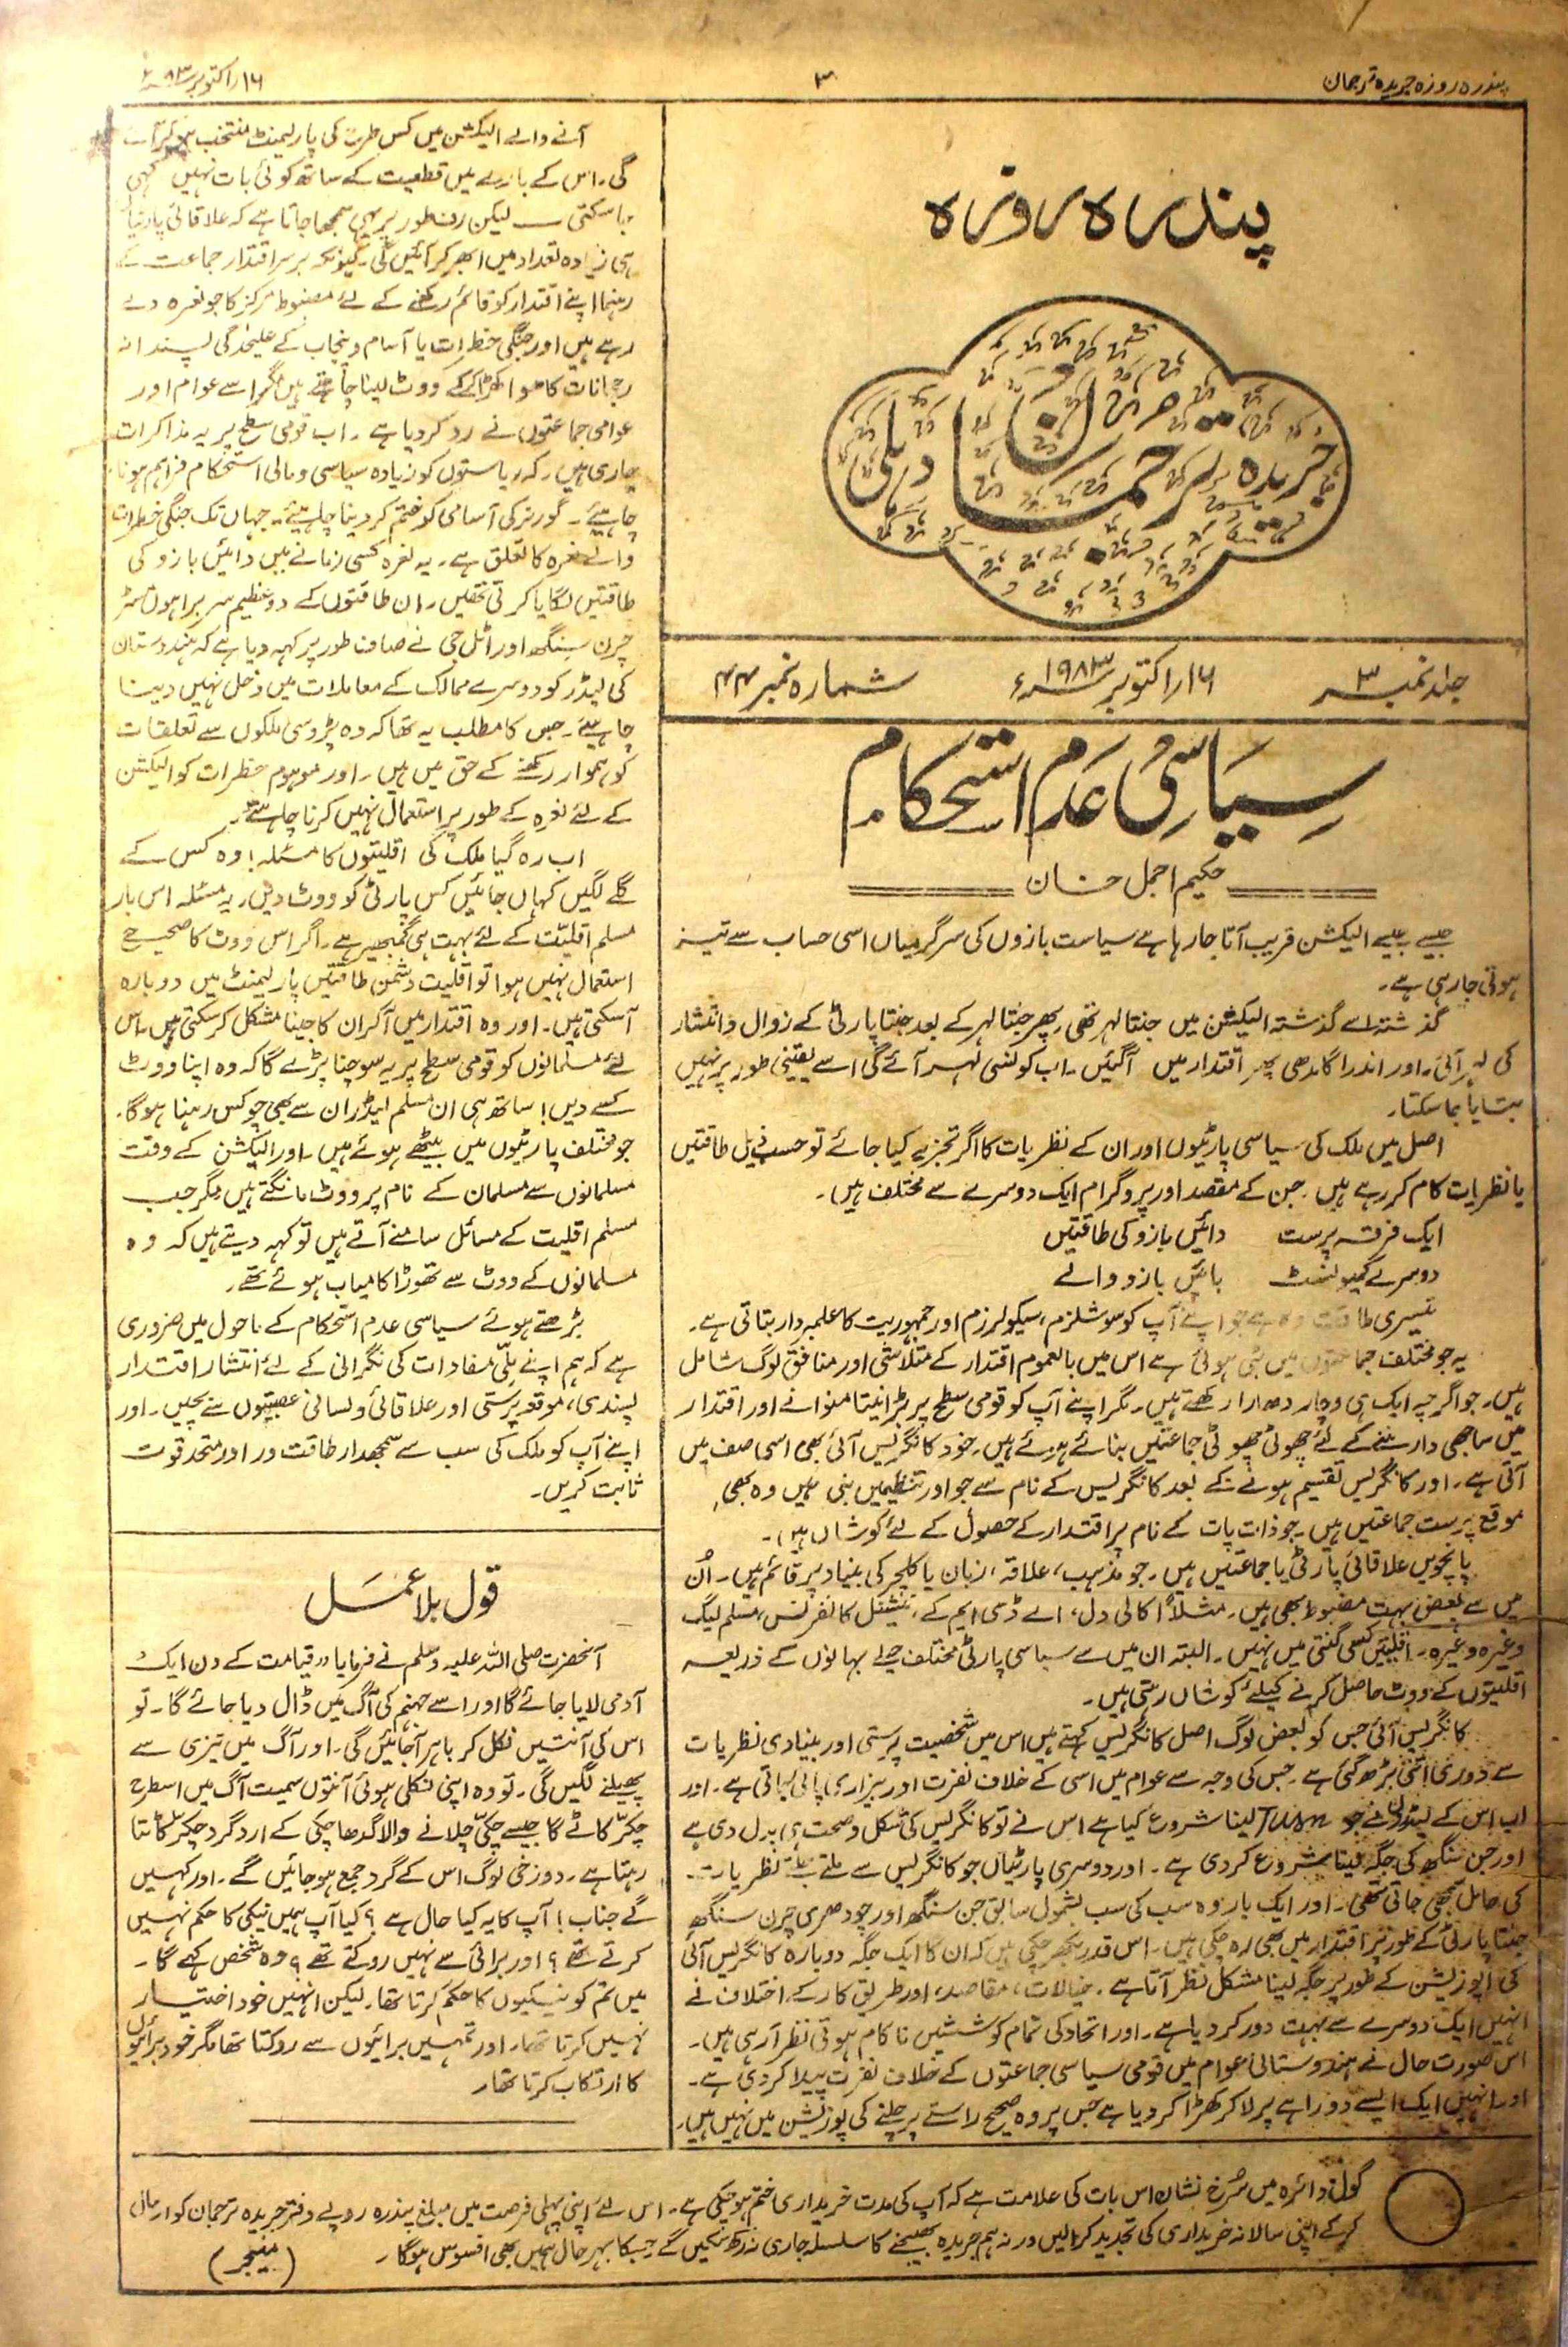 پندرہ روزہ جریدہ ترجمان
۳
۱۶/ اکتوبر ۸۳ء
پندرہ روزہ
جریدہ ترجمان دہلی
جلد نمبر ۳
۱۶/ اکتوبر ۱۹۸۳ء
شمارہ نمبر ۴۴
سیاسی عدم استحکام
حکیم اجمل خان
جیسے جیسے الیکشن قریب آتا جا رہا ہے سیاست بازوں کی سرگرمیاں اسی حساب سے تیز
ہوتی جا رہی ہے۔
گذشتہ سے گذشتہ الیکشن میں جنتا لہر تھی، پھر جنتا لہر کے بعد جنتا پارٹی کے زوال و انتشار
کی لہر آئی۔ اور اندرا گاندھی پھر اقتدار میں آگئیں۔ اب کونسی لہر آئے گی اسے یقینی طور پر نہیں
بتایا جا سکتا۔
اصل میں ملک کی سیاسی پارٹیوں اور ان کے نظریات کا اگر تجزیہ کیا جائے تو حسب ذیل طاقتیں
یا نظریات کام کر رہے ہیں۔ جن کے مقصد اور پروگرام ایک دوسرے سے مختلف ہیں۔
ایک فرقہ پرست دائیں بازو کی طاقتیں
دوسرے کمیونسٹ بائیں بازو والے
تیسری طاقت وہ ہے جو اپنے آپ کو سوشلزم، سیکولرزم اور جمہوریت کا علمبردار بتاتی ہے۔
یہ جو مختلف جماعتوں میں بٹی ہوئی ہے اس میں بالعموم اقتدار کے متلاشی اور منافق لوگ شامل
ہیں۔ جو اگرچہ ایک ہی وچار دھارا رکھتے ہیں۔ مگر اپنے آپ کو قومی سطح پر بڑا نیتا منوانے اور اقتدار
میں ساجھی دار بننے کے لئے چھوٹی چھوٹی جماعتیں بنائے ہوئے ہیں۔ خود کانگریس آئی بھی اسی صف میں
آتی ہے۔ اور کانگریس تقسیم ہونے کے بعد کانگریس کے نام سے جو اور تنظیمیں بنی ہیں وہ بھی
موقع پرست جماعتیں ہیں۔ جو ذات پات کے نام پر اقتدار کے حصول کے لئے کوشاں ہیں۔
پانچویں علاقائی پارٹی یا جماعتیں ہیں۔ جو مذہب، علاقہ، زبان یا کلچر کی بنیاد پر قائم ہیں۔ اُن
میں سے بعض بہت مضبوط بھی ہیں۔ مثلاً اکالی دل، اے ڈی ایم کے، نیشنل کانفرنس، مسلم لیگ
وغیرہ وغیرہ۔ اقلیتیں کسی گنتی میں نہیں۔ البتہ ان میں سے سیاسی پارٹی مختلف حیلے بہانوں کے ذریعہ
اقلیتوں کے ووٹ حاصل کرنے کیلئے کوشاں رہتی ہیں۔
کانگریس آئی جس کو بعض لوگ اصل کانگریس کہتے ہیں اس میں شخصیت پرستی اور بنیادی نظریات
سے دوری اتنی بڑھ گئی ہے۔ جس کی وجہ سے عوام میں اسی کے خلاف نفرت اور بیزاری پائی جاتی ہے۔ اور
اب اس کے لیڈروں نے جو Turn لینا شروع کیا ہے اس نے تو کانگریس کی شکل و صحت ہی بدل دی ہے
اور جن سنگھ کی جگہ لینا شروع کر دی ہے۔ اور دوسری پارٹیاں جو کانگریس سے ملتے جلتے نظریات
کی حامل سمجھی جاتی تھی۔ اور ایک بار وہ سب کی سب بشمول سابق جن سنگھ اور چودھری چرن سنگھ
جنتا پارٹی کے طور پر اقتدار میں بھی رہ چکی ہیں۔ اس قدر بکھر چکی ہیں کہ ان کا ایک جگہ دوبارہ کانگریس آئی
کی اپوزیشن کے طور پر جگہ لینا مشکل نظر آتا ہے۔ خیالات، مقاصد، اور طریق کار کے اختلاف نے
انہیں ایک دوسرے سے بہت دور کر دیا ہے۔ اور اتحاد کی تمام کوششیں ناکام ہوتی نظر آ رہی ہیں۔
اس صورت حال نے ہندوستانی عوام میں قومی سیاسی جماعتوں کے خلاف نفرت پیدا کر دی ہے۔
اور انہیں ایک ایسے دوراہے پر لا کر کھڑا کر دیا ہے جس پر وہ صحیح راستے پر چلنے کی پوزیشن میں نہیں ہیں۔
آنے والے الیکشن میں کس طرح کی پارلیمنٹ منتخب ہو کر آئے
گی۔ اس کے بارے میں قطعیت کے ساتھ کوئی بات نہیں کہی
جا سکتی۔ لیکن طور پر یہی سمجھا جاتا ہے کہ علاقائی پارٹیاں
ہی زیادہ تعداد میں ابھر کر آئیں گی۔ کیونکہ برسر اقتدار جماعت کے
رہنما اپنے اقتدار کو قائم رکھنے کے لئے مضبوط مرکز کا جو نعرہ دے
رہے ہیں اور جنگی خطرات یا آسام و پنجاب کے علیحدگی پسندانہ
رجحانات کا ہوا کھڑا کر کے ووٹ لینا چاہتے ہیں مگر اسے عوام اور
عوامی جماعتوں نے رد کر دیا ہے۔ اب قومی سطح پر یہ مذاکرات
جاری ہیں۔ کہ ریاستوں کو زیادہ سیاسی و مالی استحکام فراہم ہونا
چاہیئے۔ گورنر کی آسامی کو ختم کر دینا چاہیئے۔ جہاں تک جنگی خطرات
والے نعرہ کا تعلق ہے۔ یہ نعرہ کسی زمانے میں دائیں بازو کی
طاقتیں لگایا کرتی تھیں۔ ان طاقتوں کے دو عظیم سربراہوں مسٹر
چرن سنگھ اور اٹل جی نے صاف طور پر کہہ دیا ہے کہ ہندوستان
کی لیڈر کو دوسرے ممالک کے معاملات میں دخل نہیں دینا
چاہیئے۔ جس کا مطلب یہ تھا کہ وہ پڑوسی ملکوں سے تعلقات
کو ہموار رکھنے کے حق میں ہیں۔ اور موہوم خطرات کو الیکشن
کے لئے نعرہ کے طور پر استعمال نہیں کرنا چاہتے۔
اب رہ گیا ملک کی اقلیتوں کا مسئلہ! وہ کس کے
گلے لگیں کہاں جائیں کس پارٹی کو ووٹ دیں، یہ مسئلہ اس بار
مسلم اقلیت کے لئے بہت ہی گمبھیر ہے۔ اگر اس ووٹ کا صحیح
استعمال نہیں ہوا تو اقلیت دشمن طاقتیں پارلیمنٹ میں دوبارہ
آسکتی ہیں۔ اور وہ اقتدار میں آکر ان کا جینا مشکل کر سکتی ہیں۔ اس
لئے مسلمانوں کو قومی سطح پر یہ سوچنا پڑے گا کہ وہ اپنا ووٹ
کسے دیں! ساتھ ہی ان مسلم لیڈران سے بھی چوکس رہنا ہوگا۔
جو مختلف پارٹیوں میں بیٹھے ہوئے ہیں۔ اور الیکشن کے وقت
مسلمانوں سے مسلمان کے نام پر ووٹ مانگتے ہیں مگر جب
مسلم اقلیت کے مسائل سامنے آتے ہیں تو کہہ دیتے ہیں کہ وہ
مسلمانوں کے ووٹ سے تھوڑا کامیاب ہوئے تھے۔
بڑھتے ہوئے سیاسی عدم استحکام کے ماحول میں ضروری
ہے کہ ہم اپنے ملّی مفادات کی نگرانی کے لئے انتشار اقتدار
پسندی، موقعہ پرستی اور علاقائی و لسانی عصبیتوں سے بچیں۔ اور
اپنے آپ کو ملک کی سب سے سمجھدار طاقت ور اور متحد قوت
ثابت کریں۔
قول بلا عمل
آنحضرت صلی اللہ علیہ وسلم نے فرمایا "قیامت کے دن ایک
آدمی لایا جائے گا اور اسے جہنم کی آگ میں ڈال دیا جائے گا۔ تو
اس کی آنتیں نکل کر باہر آجائیں گی۔ اور آگ میں تیزی سے
پھیلنے لگیں گی۔ تو وہ اپنی نکلی ہوئی آنتوں سمیت آگ میں اسطرح
چکر کاٹے گا جیسے چکی چلانے والا گدھا چکی کے ارد گرد چکر کاٹتا
رہتا ہے۔ دوزخی لوگ اس کے گرد جمع ہو جائیں گے۔ اور کہیں
گے جناب! آپ کا یہ کیا حال ہے؟ کیا آپ ہمیں نیکی کا حکم نہیں
کرتے تھے؟ اور برائی سے نہیں روکتے تھے؟ وہ شخص کہے گا۔
میں تم کو نیکیوں کا حکم کرتا تھا۔ لیکن انہیں خود اختیار
نہیں کرتا تھا۔ اور تمہیں برائیوں سے روکتا تھا مگر خود برائیوں
کا ارتکاب کرتا تھا۔
گول دائرہ میں سُرخ نشان اس بات کی علامت ہے کہ آپ کی مدت خریداری ختم ہو چکی ہے۔ اس لئے اپنی پہلی فرصت میں مبلغ پندرہ روپے دفتر جریدہ ترجمان کو ارسال
کر کے اپنی سالانہ خریداری کی تجدید کرا لیں ورنہ ہم جریدہ بھیجنے کا سلسلہ جاری نہ رکھ سکیں گے جسکا بہر حال ہمیں بھی افسوس ہوگا۔
(منیجر)